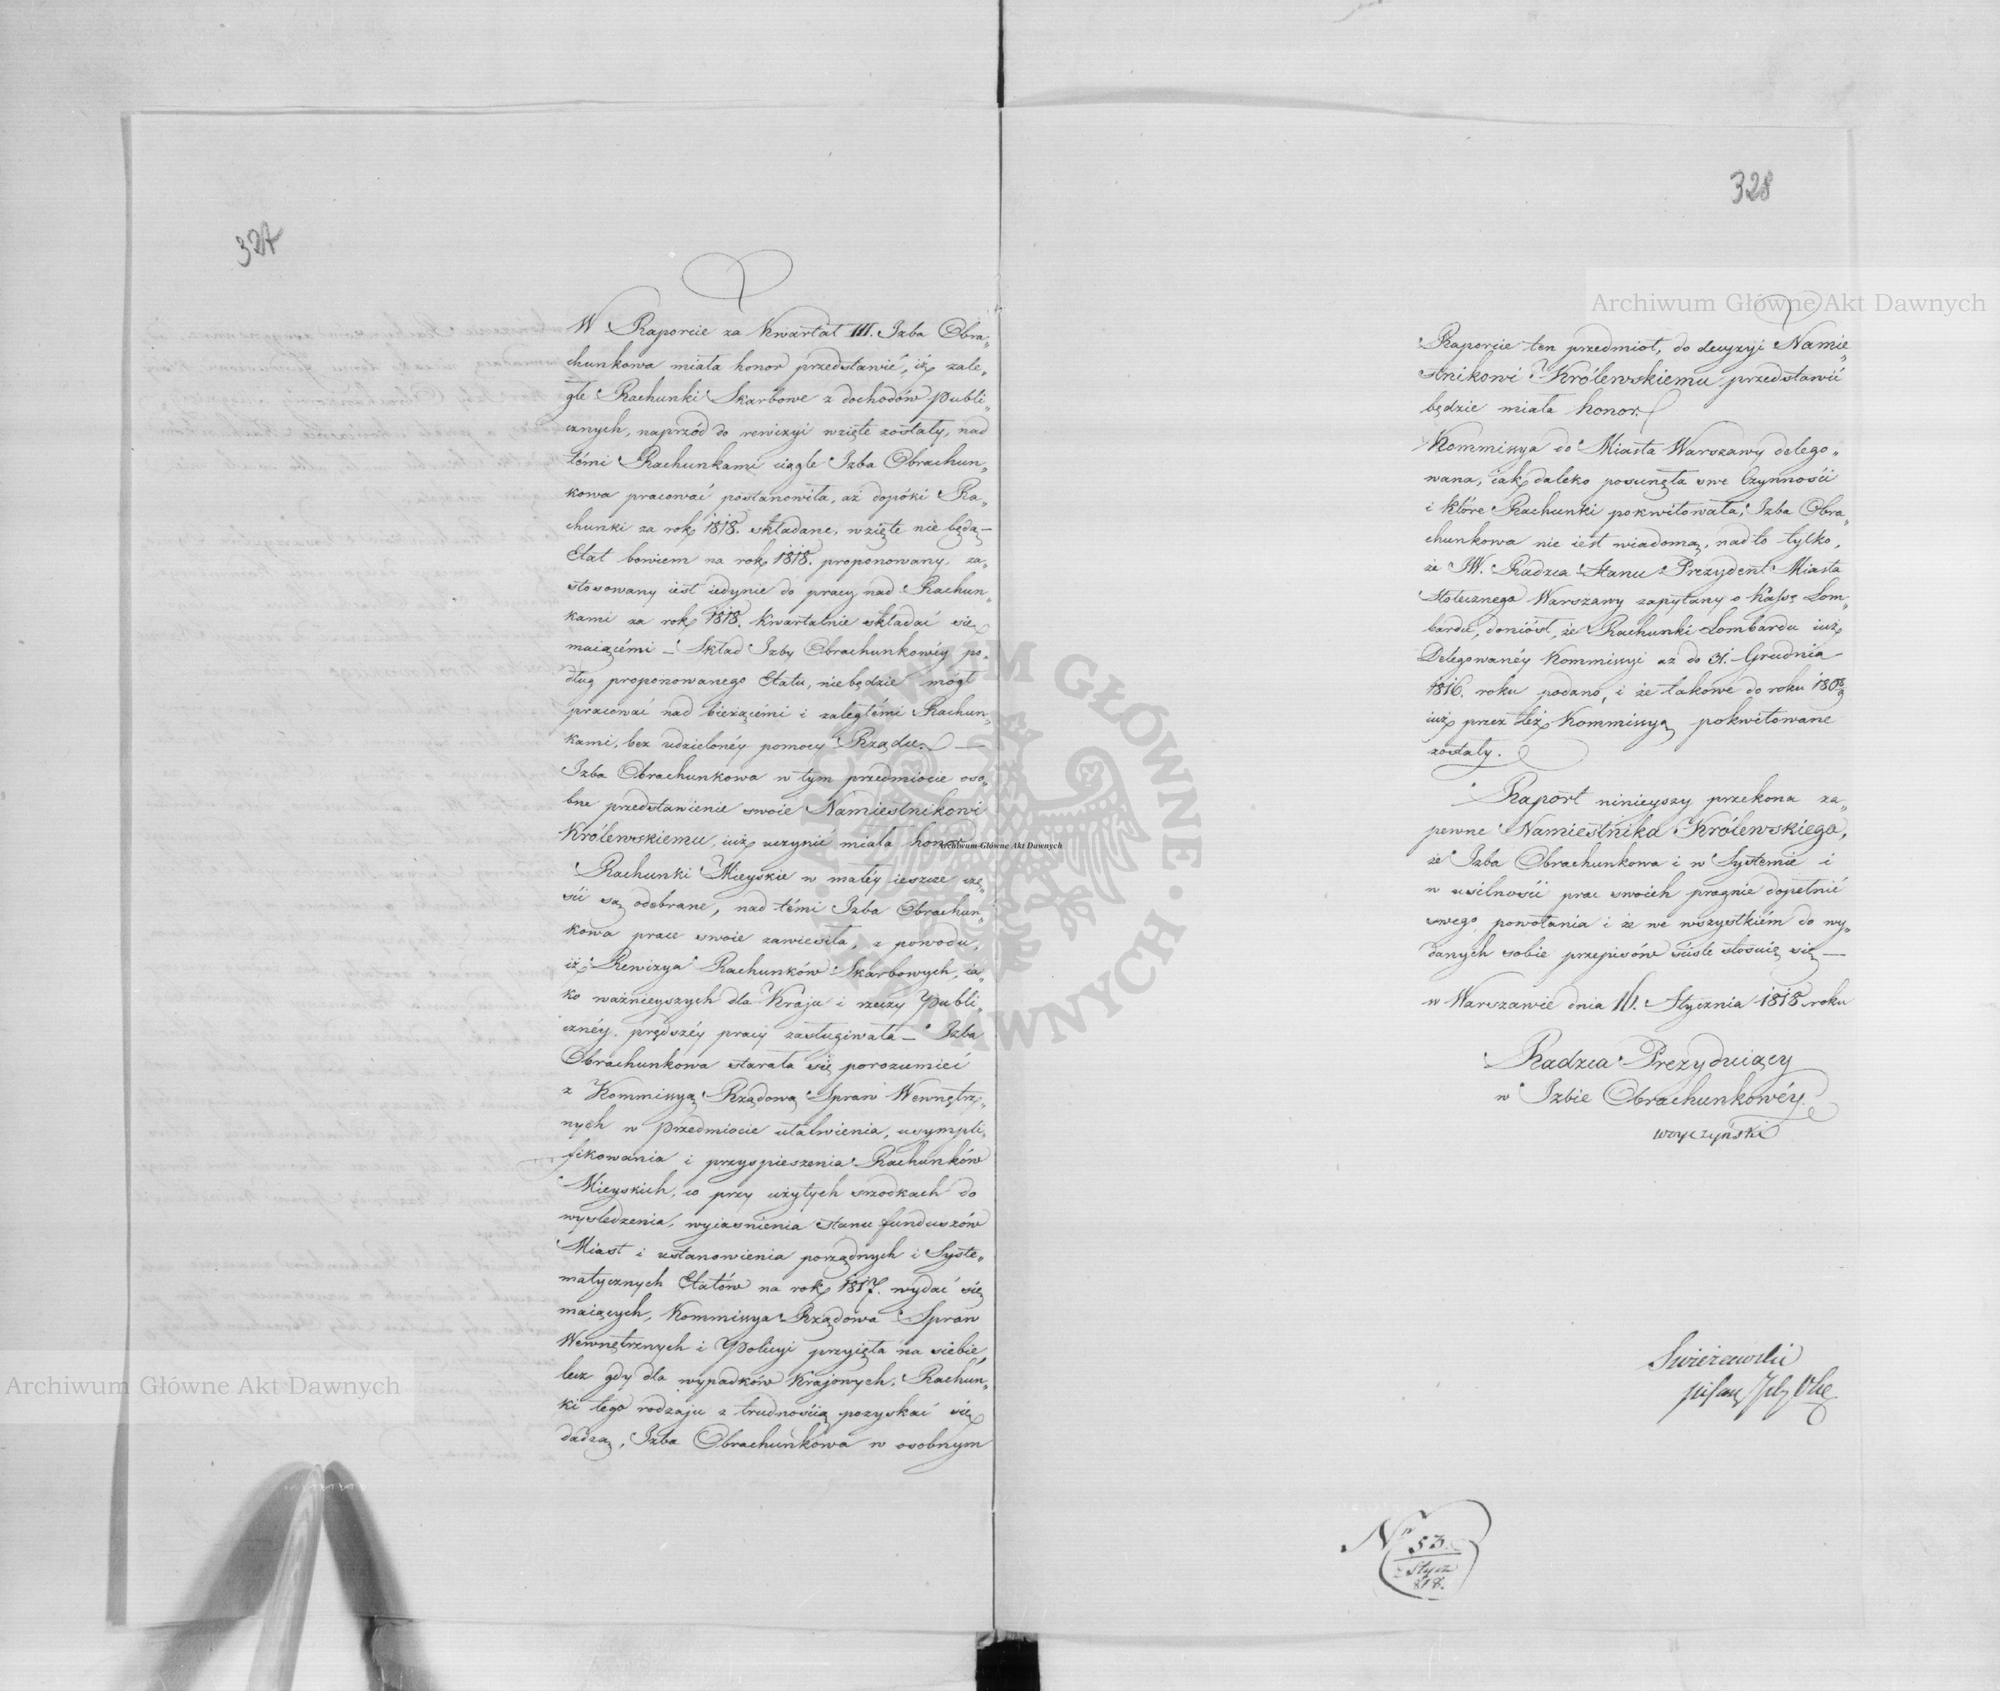 327
W Raporcie za Kwartał III. Izba Obra„
chunkowa miała honor przedstawić, iż zale„
głe Rachunki Skarbowe z dochodów publi„
cznych, naprzód do rewizyi wzięte zostały, nad
témi Rachunkami ciągle Izba Obrachun„
kowa pracować postanowiła, aż dopóki Ra„
chunki za rok 1818. składane, wzięte nie będą —
Etat bowiem na rok 1818. proponowany, za„
stosowany iest iedynie do pracy nad Rachun„
kami za rok 1818. kwartalnie składać się
maiącémi — Skład Izby Obrachunkowéy po„
dług proponowanego Etatu, nie będzie mógł
pracować nad bieżącémi i zaległémi Rachun„
kami, bez udzielonéy pomocy Rządu. —
Izba Obrachunkowa w tym przedmiocie oso„
bne przedstawienie swoie Namiestnikowi
Królewskiemu, iuż uczynić miała honor
Rachunki Mieyskie w małéy ieszcze czę„
ści są odebrane, nad témi Izba Obrachun„
kowa prace swoie zawiesiła, z powodu,
iż Rewizya Rachunków Skarbowych, ia„
ko ważnieyszych dla Kraju i rzeczy Publi„
cznéy, prędszéy pracy zasługiwała — Izba
Obrachunkowa starała się porozumieć
z Kommissyą Rządową Spraw Wewnętrz„
nych w przedmiocie ułatwienia, usympli„
fikowania i przyspieszenia Rachunków
Mieyskich, co przy użytych srzodkach do
wysledzenia, wyiasnienia stanu funduszów
Miast i ustanowienia porządnych i Syste„
matycznych Etatów na rok 1817. wydać się
maiących, Kommissya Rządowa Spraw
Wewnętrznych i Policyi przyięła na siebie,
lecz gdy dla wypadków Krajowych, Rachun„
ki tego rodzaju z trudnością pozyskać się
dadzą, Izba Obrachunkowa w osobnym
328
Raporcie ten przedmiot, do decyzyi Namie„
stnikowi Królewskiemu przedstawić
będzie miała honor.
Kommissya do Miasta Warszawy delego„
wana, iak daleko posunęła swe Czynności
i które Rachunki pokwitowała, Izba Obra„
chunkowa nie iest wiadomą, nad to tylko,
że JW. Radzca Stanu Prezydent Miasta
Stołecznego Warszawy zapytany o Kassę Lom„
bardu, doniósł, że Rachunki Lombardu iuż
Delegowanéy Kommissyi aż do 31. Grudnia
1816. roku podano, i że takowe do roku 180 8/9
iuż przez też Kommissyą pokwitowane
zostały.
Raport ninieyszy przekona za„
pewne Namiestnika Królewskiego,
że Izba Obrachunkowa i w Systemie i
w usilności prac swoich pragnie dopełnić
swego powołania i że we wszystkiém do wy„
danych sobie przepisów ściśle stosuię się —
w Warszawie dnia 16. Stycznia 1818 roku
Radzca Prezyduiący
w Izbie Obrachunkowéy
Woyczyński
Swieżewski
pisarz Izby
Nr 53.
Stycz
818.
Archiwum Główne Akt Dawnych
Archiwum Główne Akt Dawnych
Archiwum Główne Akt Dawnych
ARCHIWUM GŁÓWNE AKT DAWNYCH